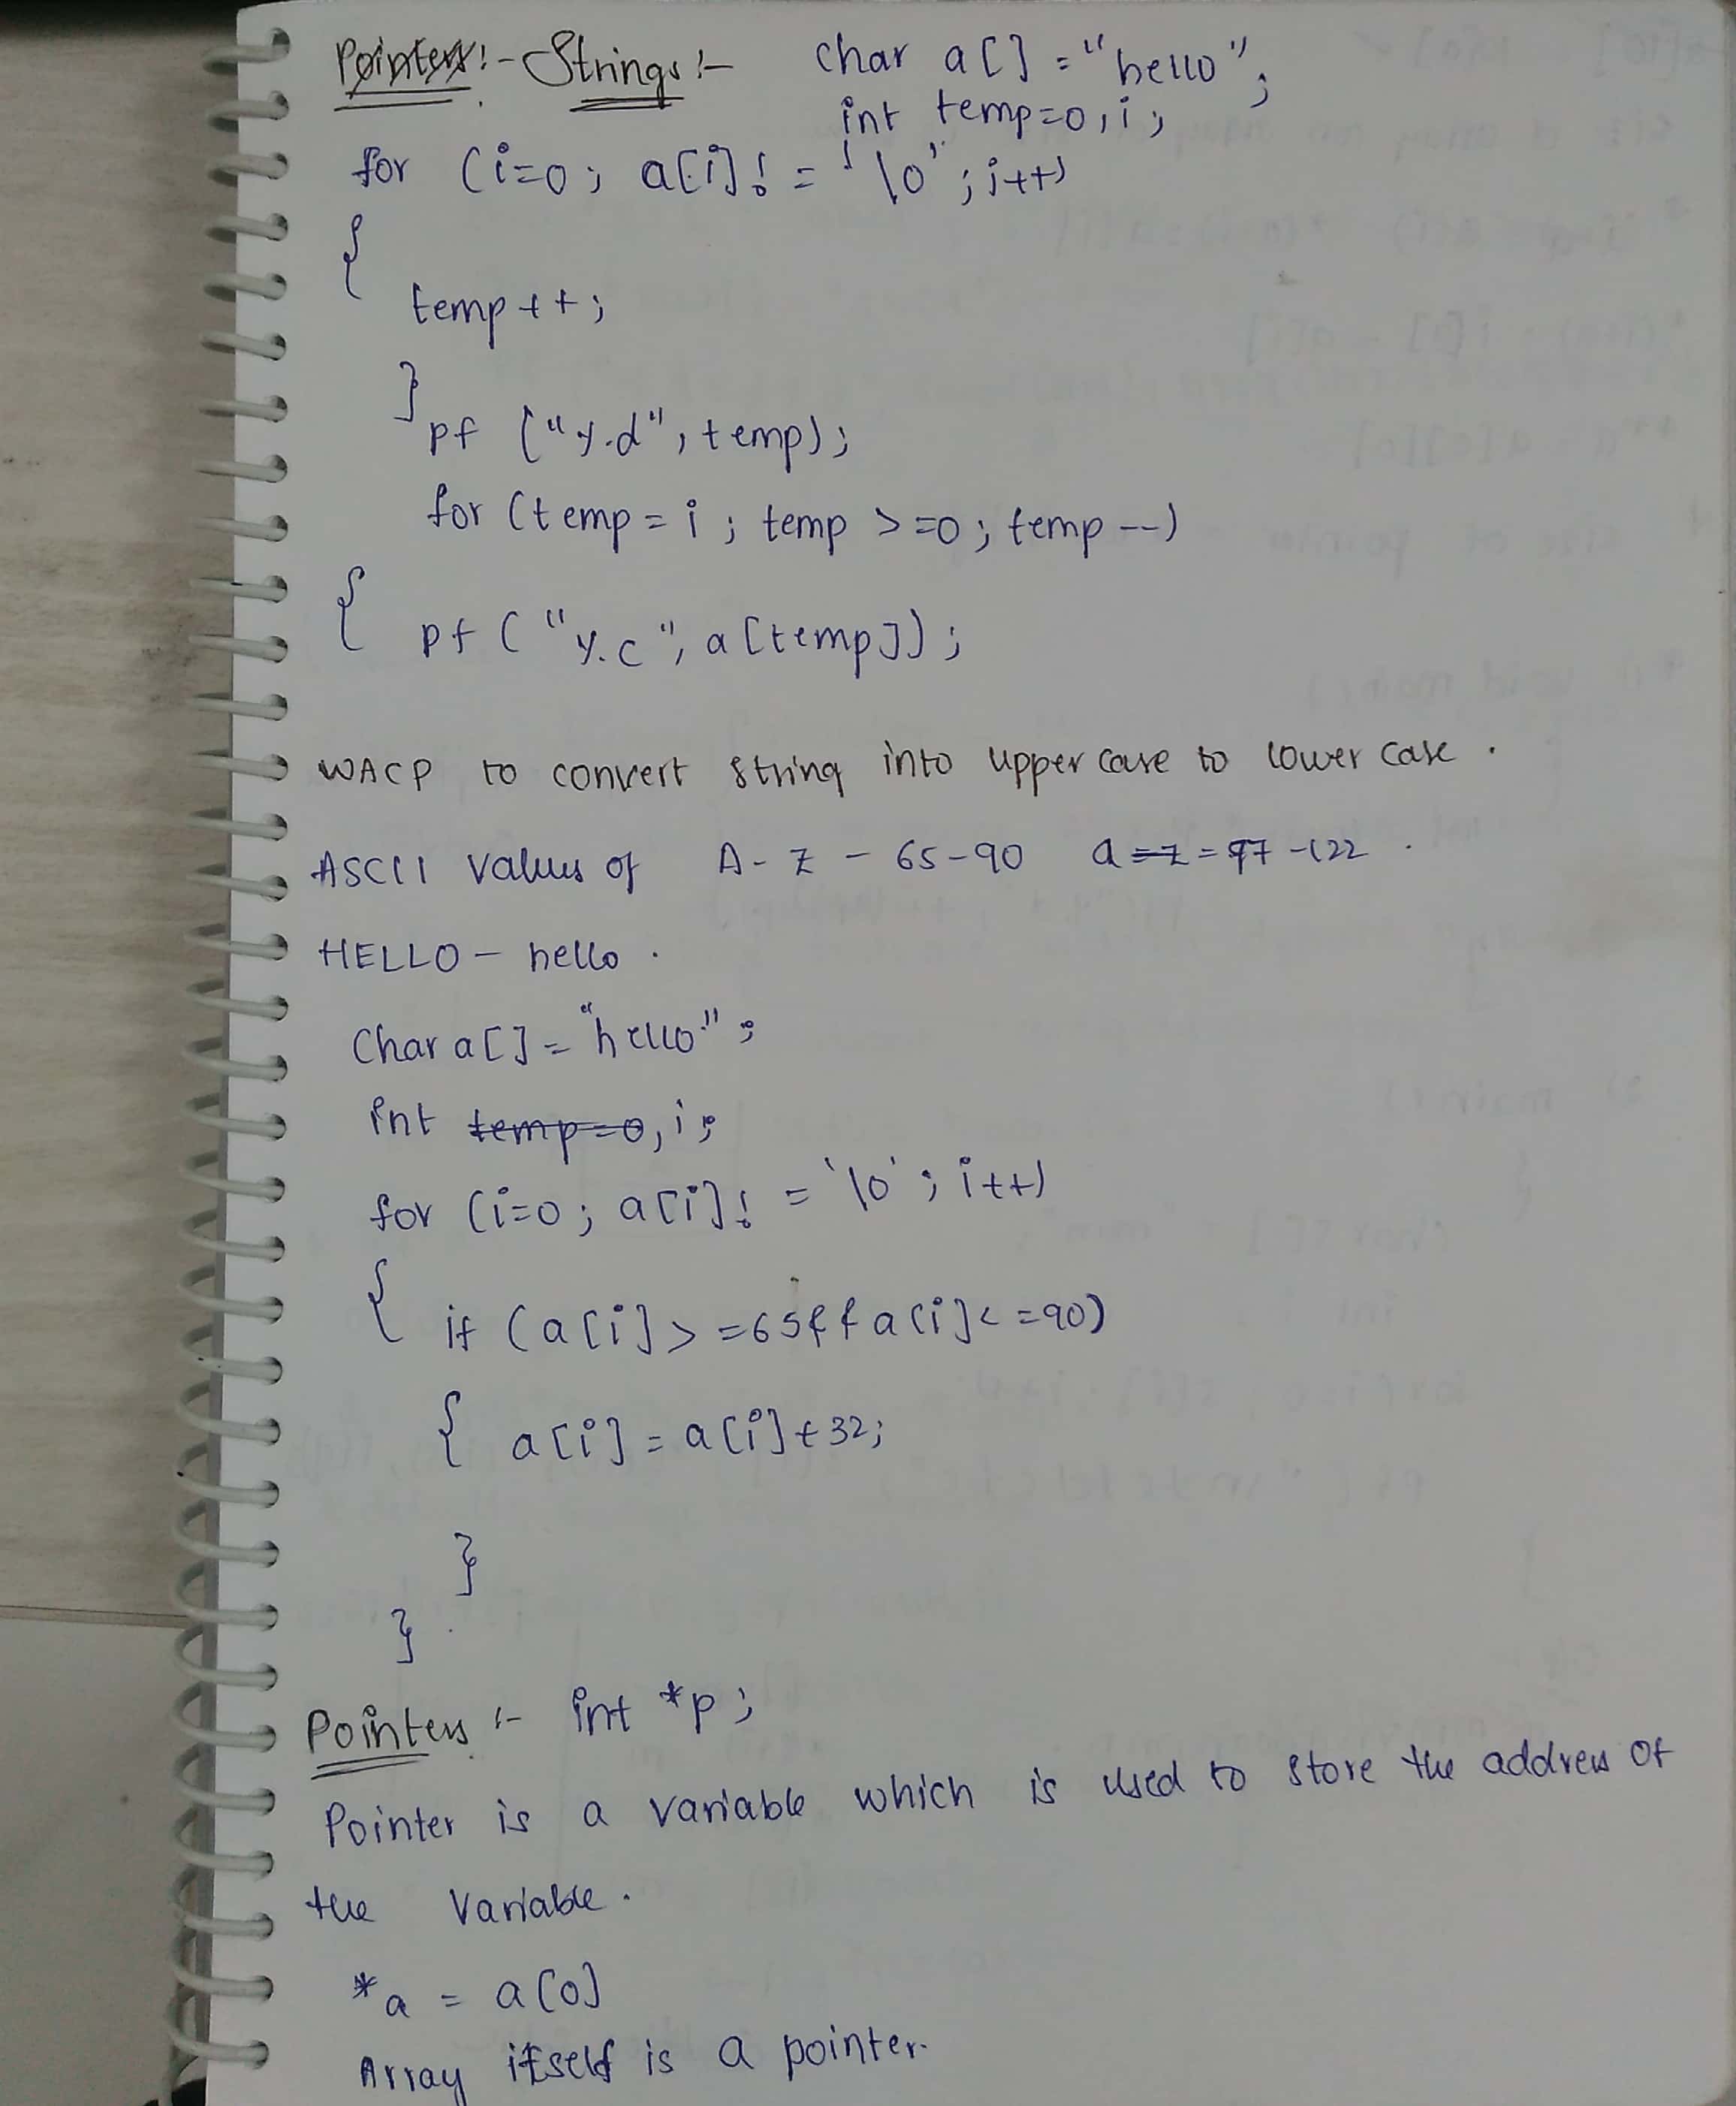 Pointers:- Strings:- char a[] = "hello";
int temp=0, i;
for (i=0; a[i]! = '\0'; i++)
{
temp++;
}
pf ("%d", temp);
for (temp = i; temp >=0; temp--)
{ pf ("%c", a[temp]);
WACP to convert string into upper case to lower case.
ASCII values of A-Z - 65-90 a-z = 97-122.
HELLO - hello.
Char a[] = "hello";
int temp=0, i;
for (i=0; a[i]! = '\0'; i++)
{ if (a[i] >=65 && a[i] <=90)
{ a[i] = a[i]+32;
}
}
Pointers :- int *p;
Pointer is a variable which is used to store the address of
the variable.
*a = a[0]
Array itself is a pointer.